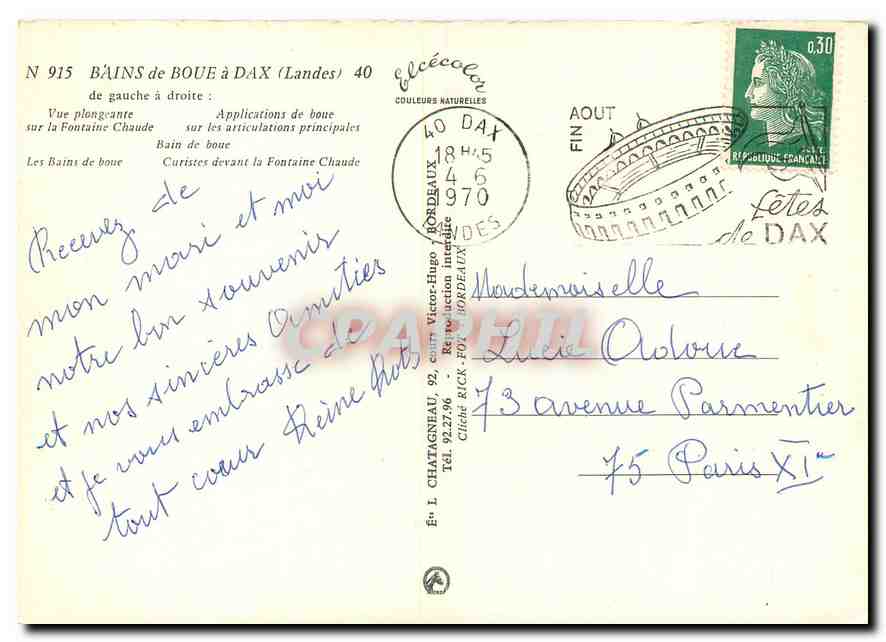 N 915 BAINS de BOUE à DAX (Landes) 40
de gauche à droite :
Vue plongeante sur la Fontaine Chaude
Applications de boue sur les articulations principales
Bain de boue
Les Bains de boue
Curistes devant la Fontaine Chaude
Elcécolor
COULEURS NATURELLES
40 DAX
18 H 45
4 6
1970
LANDES
FIN AOUT
fêtes
de DAX
0,30
REPUBLIQUE FRANÇAISE
Recevez de
mon mari et moi
notre bon souvenir
et nos sincères Amitiés
et je vous embrasse de
tout coeur Reine
Ets L. CHATAGNEAU, 92, cours Victor-Hugo - BORDEAUX
Tél. 92.27.96 - Reproduction interdite
Cliché RICK-FOT - BORDEAUX
Mademoiselle
Lucie Adoue
73 avenue Parmentier
75 Paris XIe
CPAPHIL